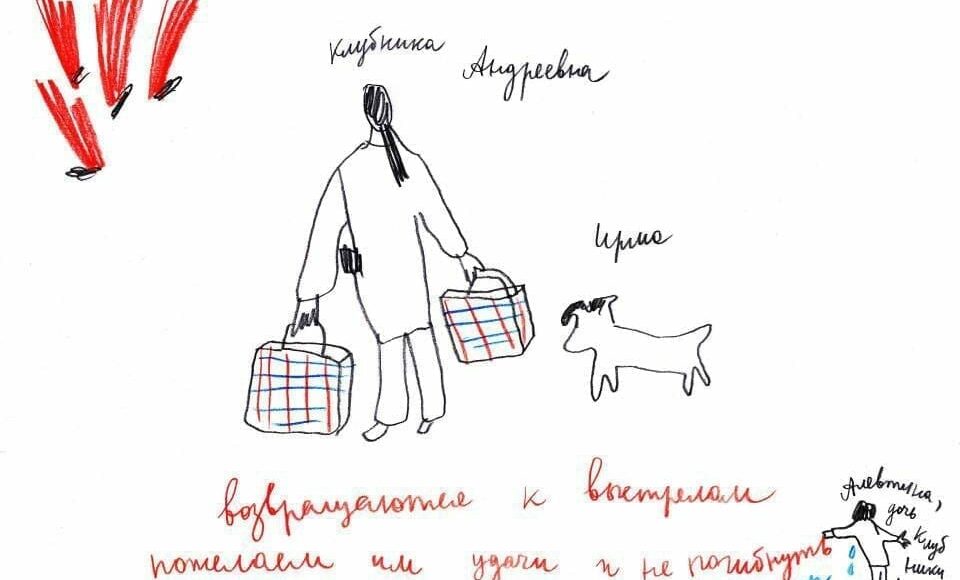 Клубника
Андреевна
Ирма
возвращаются к выстрелам
пожелаем им удачи и не погибнуть
Алевтина,
дочь
Клуб
ники